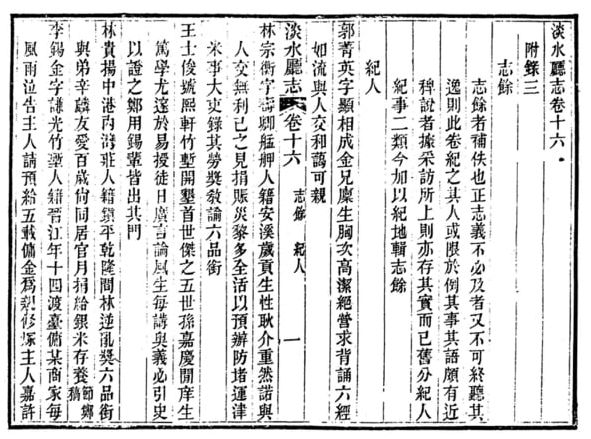 淡水廳志卷十六
附錄三
志餘
志餘者補佚也正志義不必及者又不可終聽其
逸則此卷紀之其人或限於倒其事其語頗有近
稗說者據采訪所上則亦存其實而已舊分紀人
紀事二類今加以紀地輯志餘
紀人
郭菁英字顯相成金兄廩生胸次高潔絕營求背誦六經
如流與人交和藹可親
淡水廳志 卷十六 志餘 紀人 一
林宗衡字 卿艋舺人籍安溪歲貢生性耿介重然諾與
人交無利己之見捐賑災黎多全活以預辦防堵運津
米事大吏錄其勞獎敎諭六品銜
王士俊號熙軒竹塹開墾首世傑之五世孫嘉慶間庠生
篤學尤邃於易授徒日廣言論風生每講與義必引史
以證之鄭用錫輩皆出其門
林貴揚中港內灣莊人籍鎮平乾隆間林逆亂獎六品銜
與弟辛麟友愛百歲尙同居官月捐給銀米存養節鄭稿
李錫金字謙光竹塹人籍晉江年十四渡臺傭某商家每
風雨泣告主人請預給五載傭金爲親修塚主人嘉許